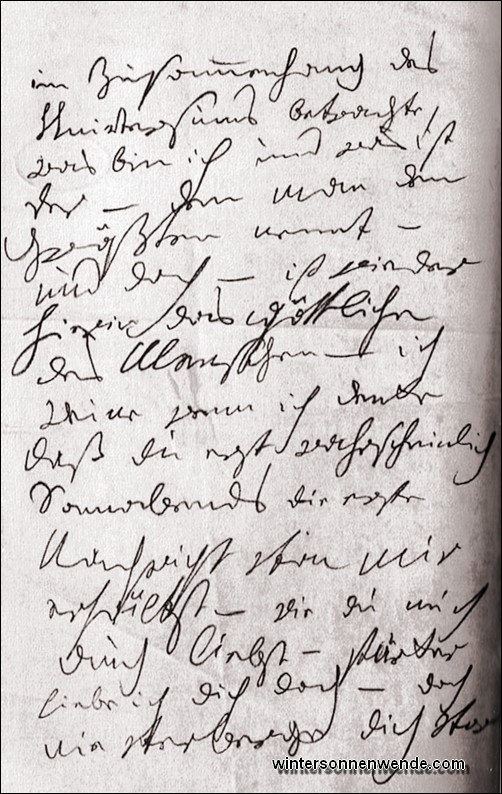 im Zusammenhang des
Universums betrachte,
was bin ich und was ist
der — den man den
Größten nennt —
und doch — ist wieder
hierin das Göttliche
des Menschen — ich
weine wenn ich denke
daß du erst wahrscheinlich
Sonnabends die erste
Nachricht von mir
erhältst — wie du mich
auch liebst — stärker
liebe ich dich doch — doch
nie verberge dich vor
wintersonnenwende.com